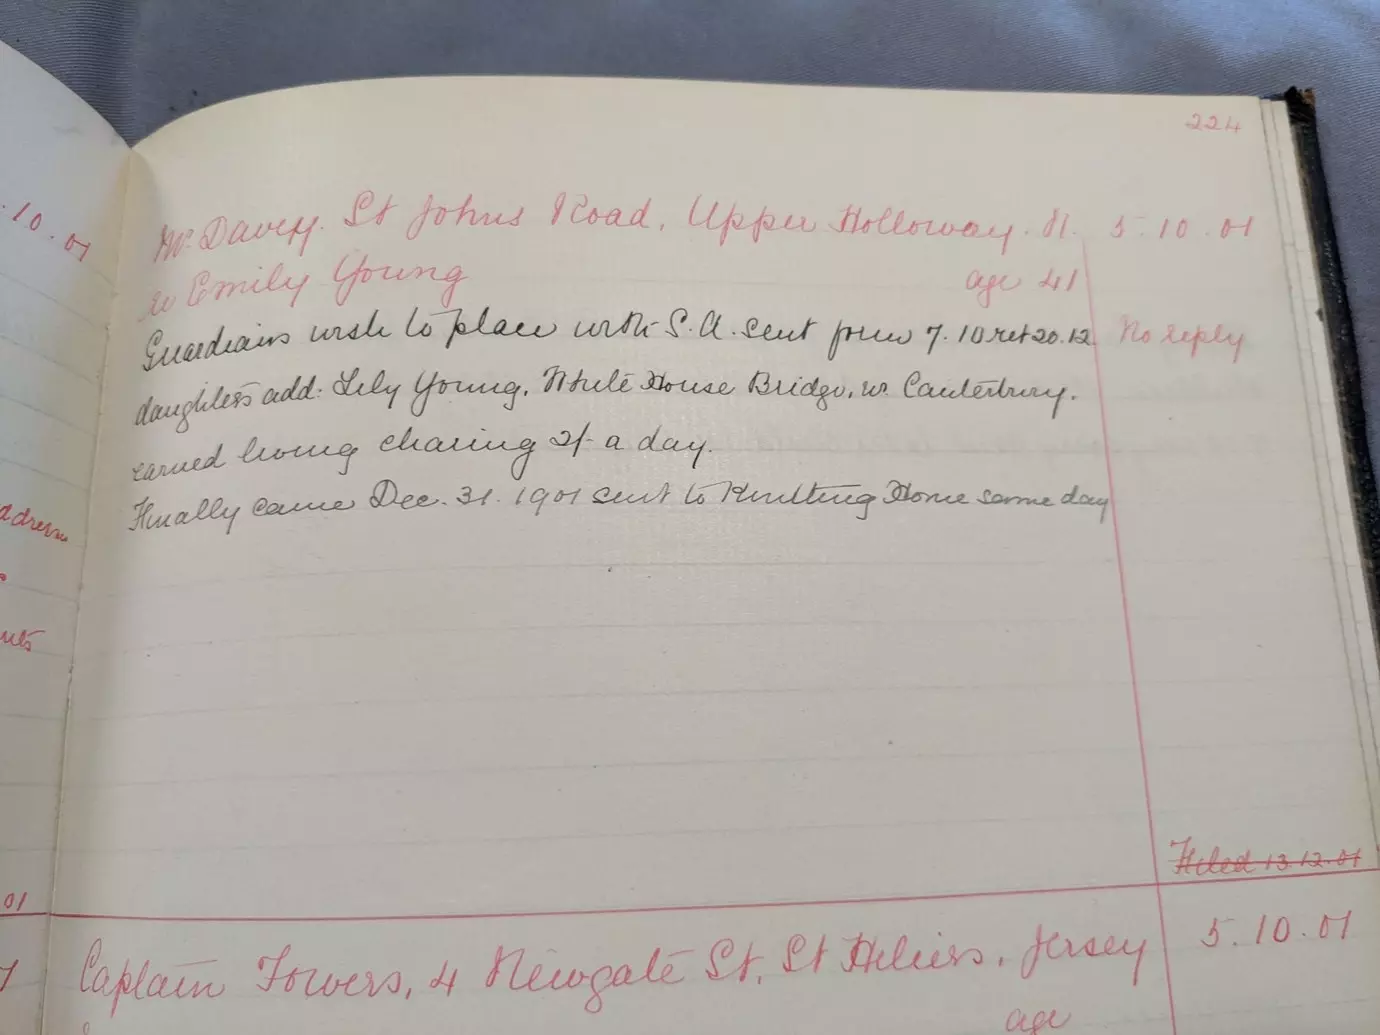 224
Mr. Davey. St Johns Road, Upper Holloway. N. 5.10.01
re Emily Young age 41
Guardians wish to place with S.A. sent form 7.10 ret 20.12 No reply
daughters add: Lily Young, White House Bridge, nr. Canterbury.
earned living charing 2/- a day.
Finally came Dec. 31. 1901 sent to Knitting Home same day
Filed 13.12.01
Captain Towers, 4 Newgate St, St Heliers, Jersey 5.10.01
age
.10.01
01